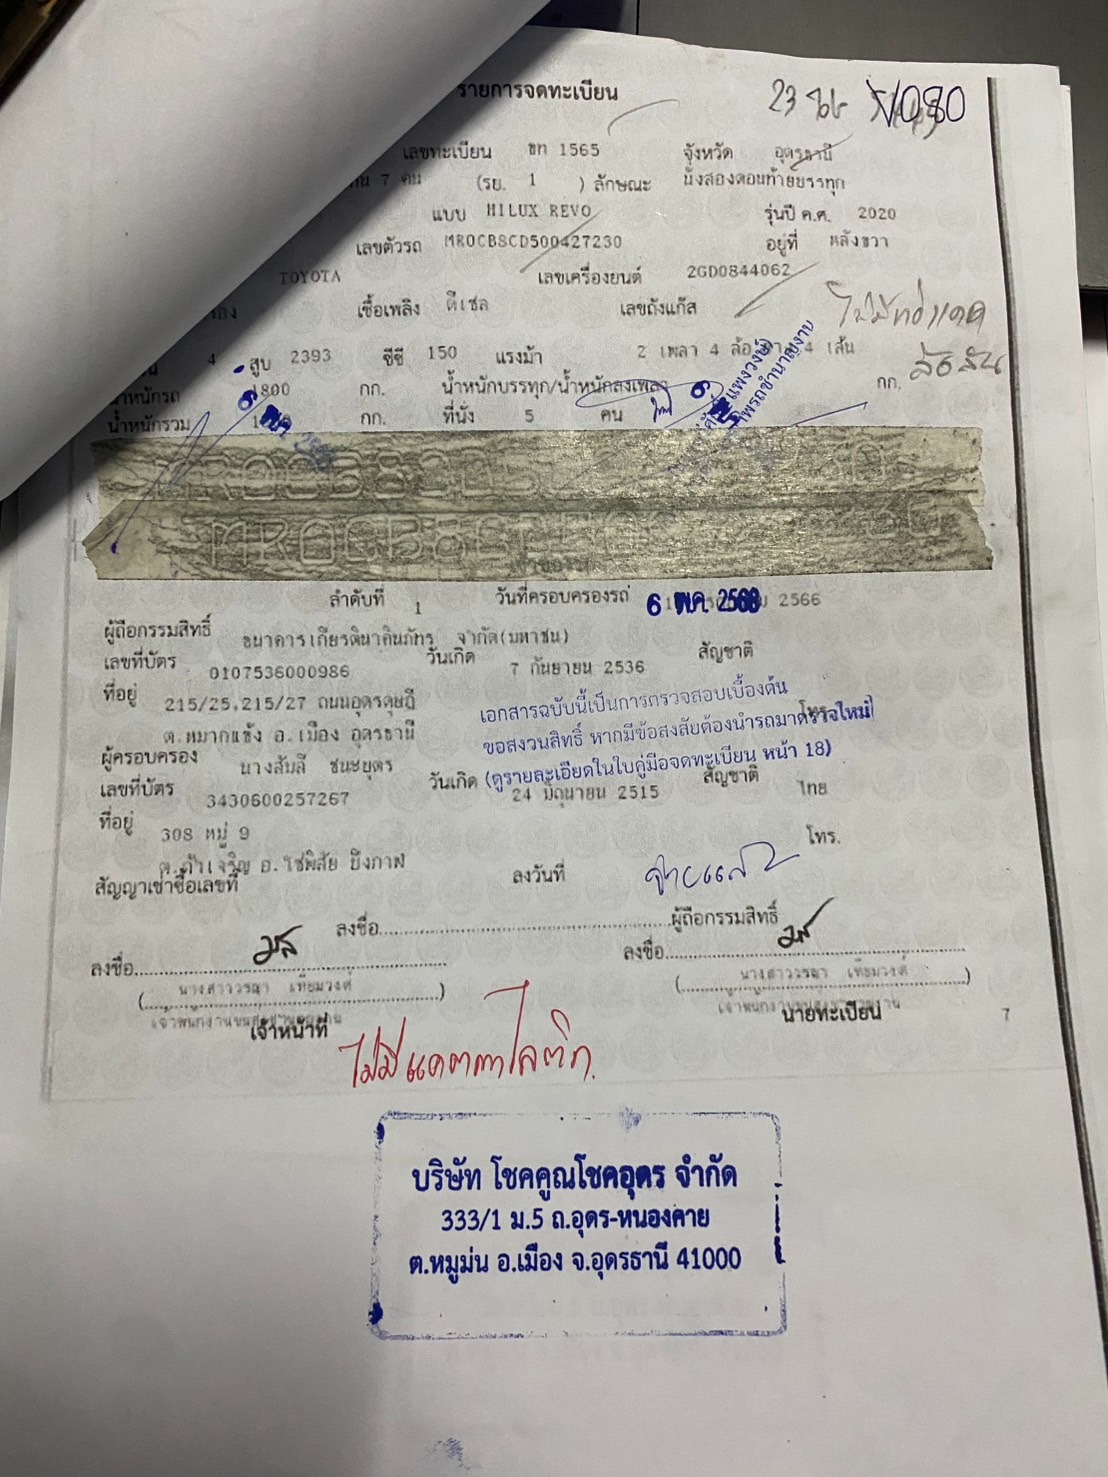 รายการจดทะเบียน
เลขทะเบียน ขท 1565 จังหวัด อุดรธานี
7 คน (รย. 1 ) ลักษณะ นั่งสองตอนท้ายบรรทุก
แบบ HILUX REVO รุ่นปี ค.ศ. 2020
เลขตัวรถ MR0CB8CD500427230 อยู่ที่ หลังขวา
TOYOTA เลขเครื่องยนต์ 2GD0844062
เชื้อเพลิง ดีเซล เลขถังแก๊ส
ไม่มีท่อแคต
4 สูบ 2393 ซีซี 150 แรงม้า 2 เพลา 4 ล้อ 4 เส้น
น้ำหนักรถ 1800 กก. น้ำหนักบรรทุก/น้ำหนักลงเพลา กก.
น้ำหนักรวม กก. ที่นั่ง 5 คน
ลำดับที่ 1 วันที่ครอบครองรถ 2566
6 พ.ค. 2568
ผู้ถือกรรมสิทธิ์ ธนาคารเกียรตินาคินภัทร จำกัด(มหาชน)
เลขที่บัตร 0107536000986 วันเกิด 7 กันยายน 2536 สัญชาติ
ที่อยู่ 215/25,215/27 ถนนอุดรดุษฎี โทร.
ต.หมากแข้ง อ.เมือง อุดรธานี
เอกสารฉบับนี้เป็นการตรวจสอบเบื้องต้น
ขอสงวนสิทธิ์ หากมีข้อสงสัยต้องนำรถมาตรวจใหม่
(ดูรายละเอียดในใบคู่มือจดทะเบียน หน้า 18)
ผู้ครอบครอง นางสมลี ชนะยุตร
เลขที่บัตร 3430600257267 วันเกิด 24 มิถุนายน 2515 สัญชาติ ไทย
ที่อยู่ 308 หมู่ 9 โทร.
ต.ถ้ำเจริญ อ.โซ่พิสัย บึงกาฬ
สัญญาเช่าซื้อเลขที่ ลงวันที่
ลงชื่อ ผู้ถือกรรมสิทธิ์
ลงชื่อ ลงชื่อ
(นางสาววรญา เทียมวงศ์) (นางสาววรญา เทียมวงศ์)
เจ้าพนักงานขนส่งชำนาญงาน เจ้าพนักงานขนส่งชำนาญงาน
เจ้าหน้าที่ นายทะเบียน 7
ไม่มีแคตตาไลติก
บริษัท โชคคูณโชคอุดร จำกัด
333/1 ม.5 ถ.อุดร-หนองคาย
ต.หมูม่น อ.เมือง จ.อุดรธานี 41000